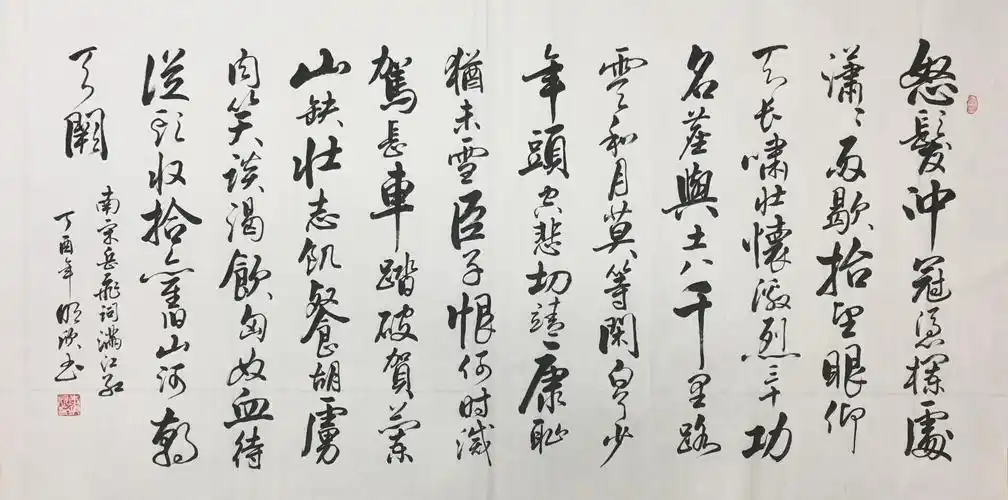 怒髮冲冠憑欄處
瀟〻雨歇抬望眼仰
天長嘯壯懷激烈三十功
名塵與土八千里路
雲和月莫等閑白了少
年頭空悲切靖康恥
猶未雪臣子恨何時滅
駕長車踏破賀蘭
山缺壯志飢餐胡虜
肉笑談渴飲匈奴血待
從頭收拾舊山河朝
天闕
南宋岳飛詞滿江紅
丁酉年明洪书